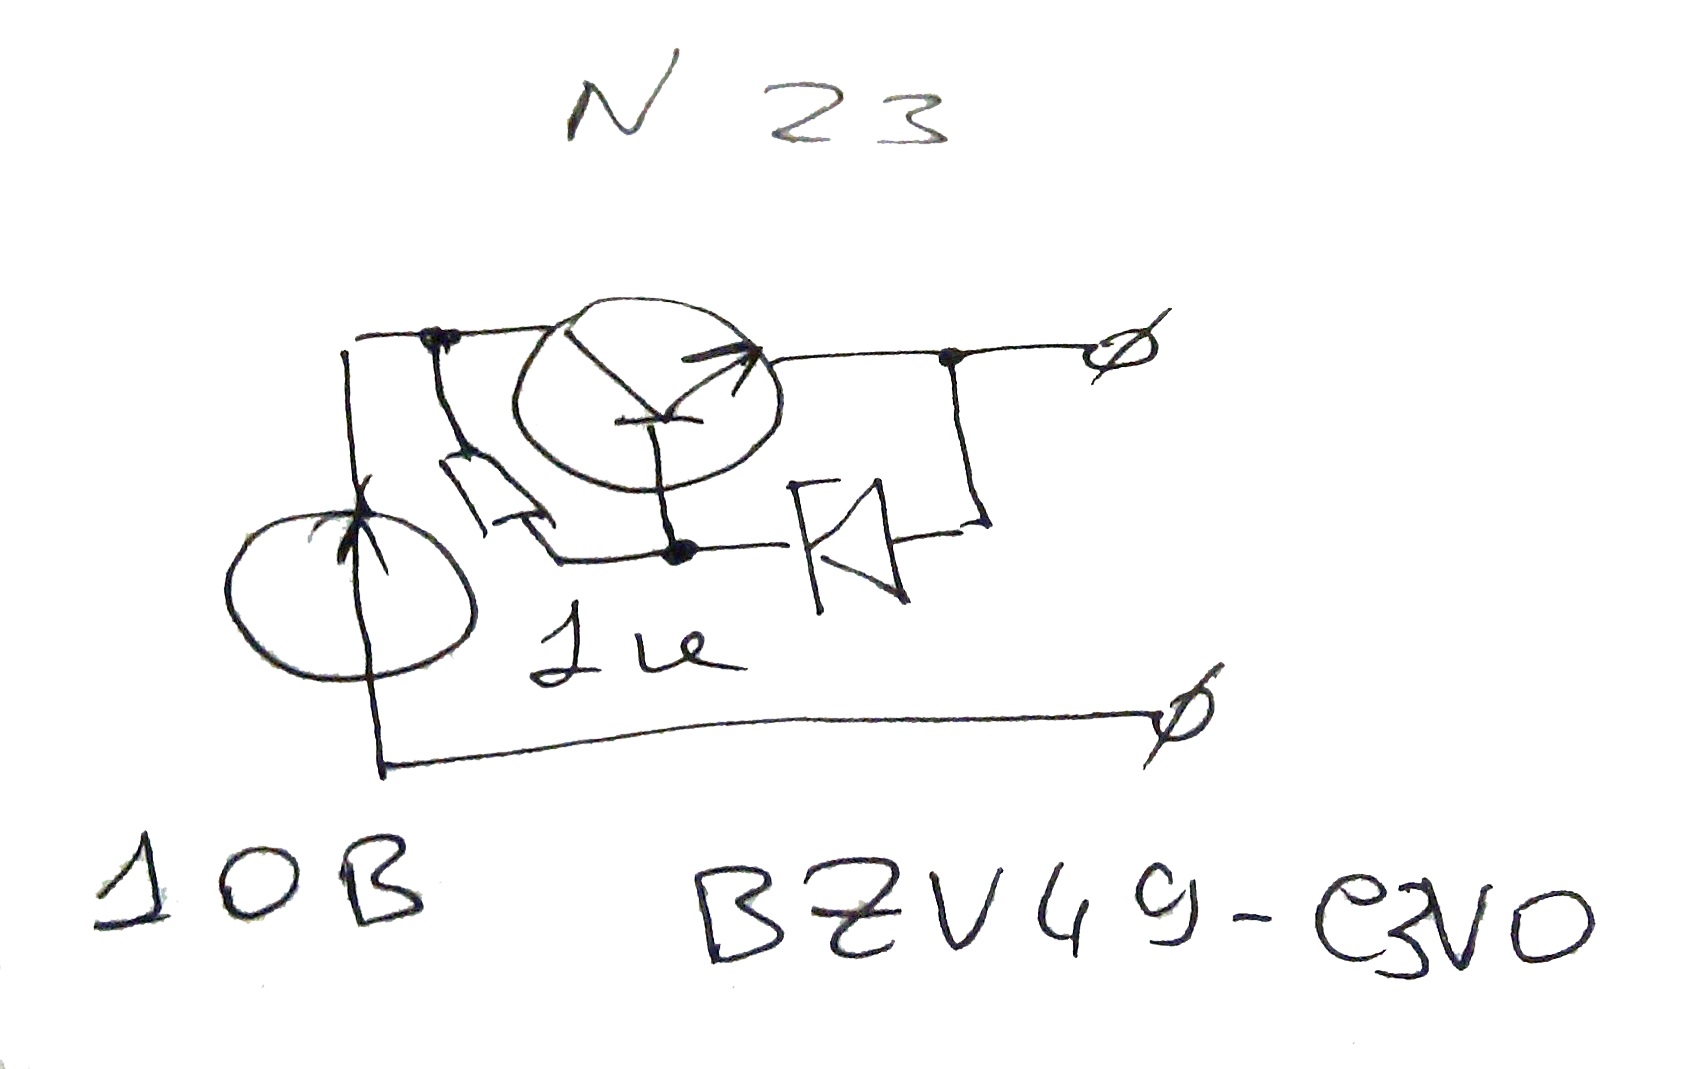 N 23
1к
10В
BZV49-C3V0